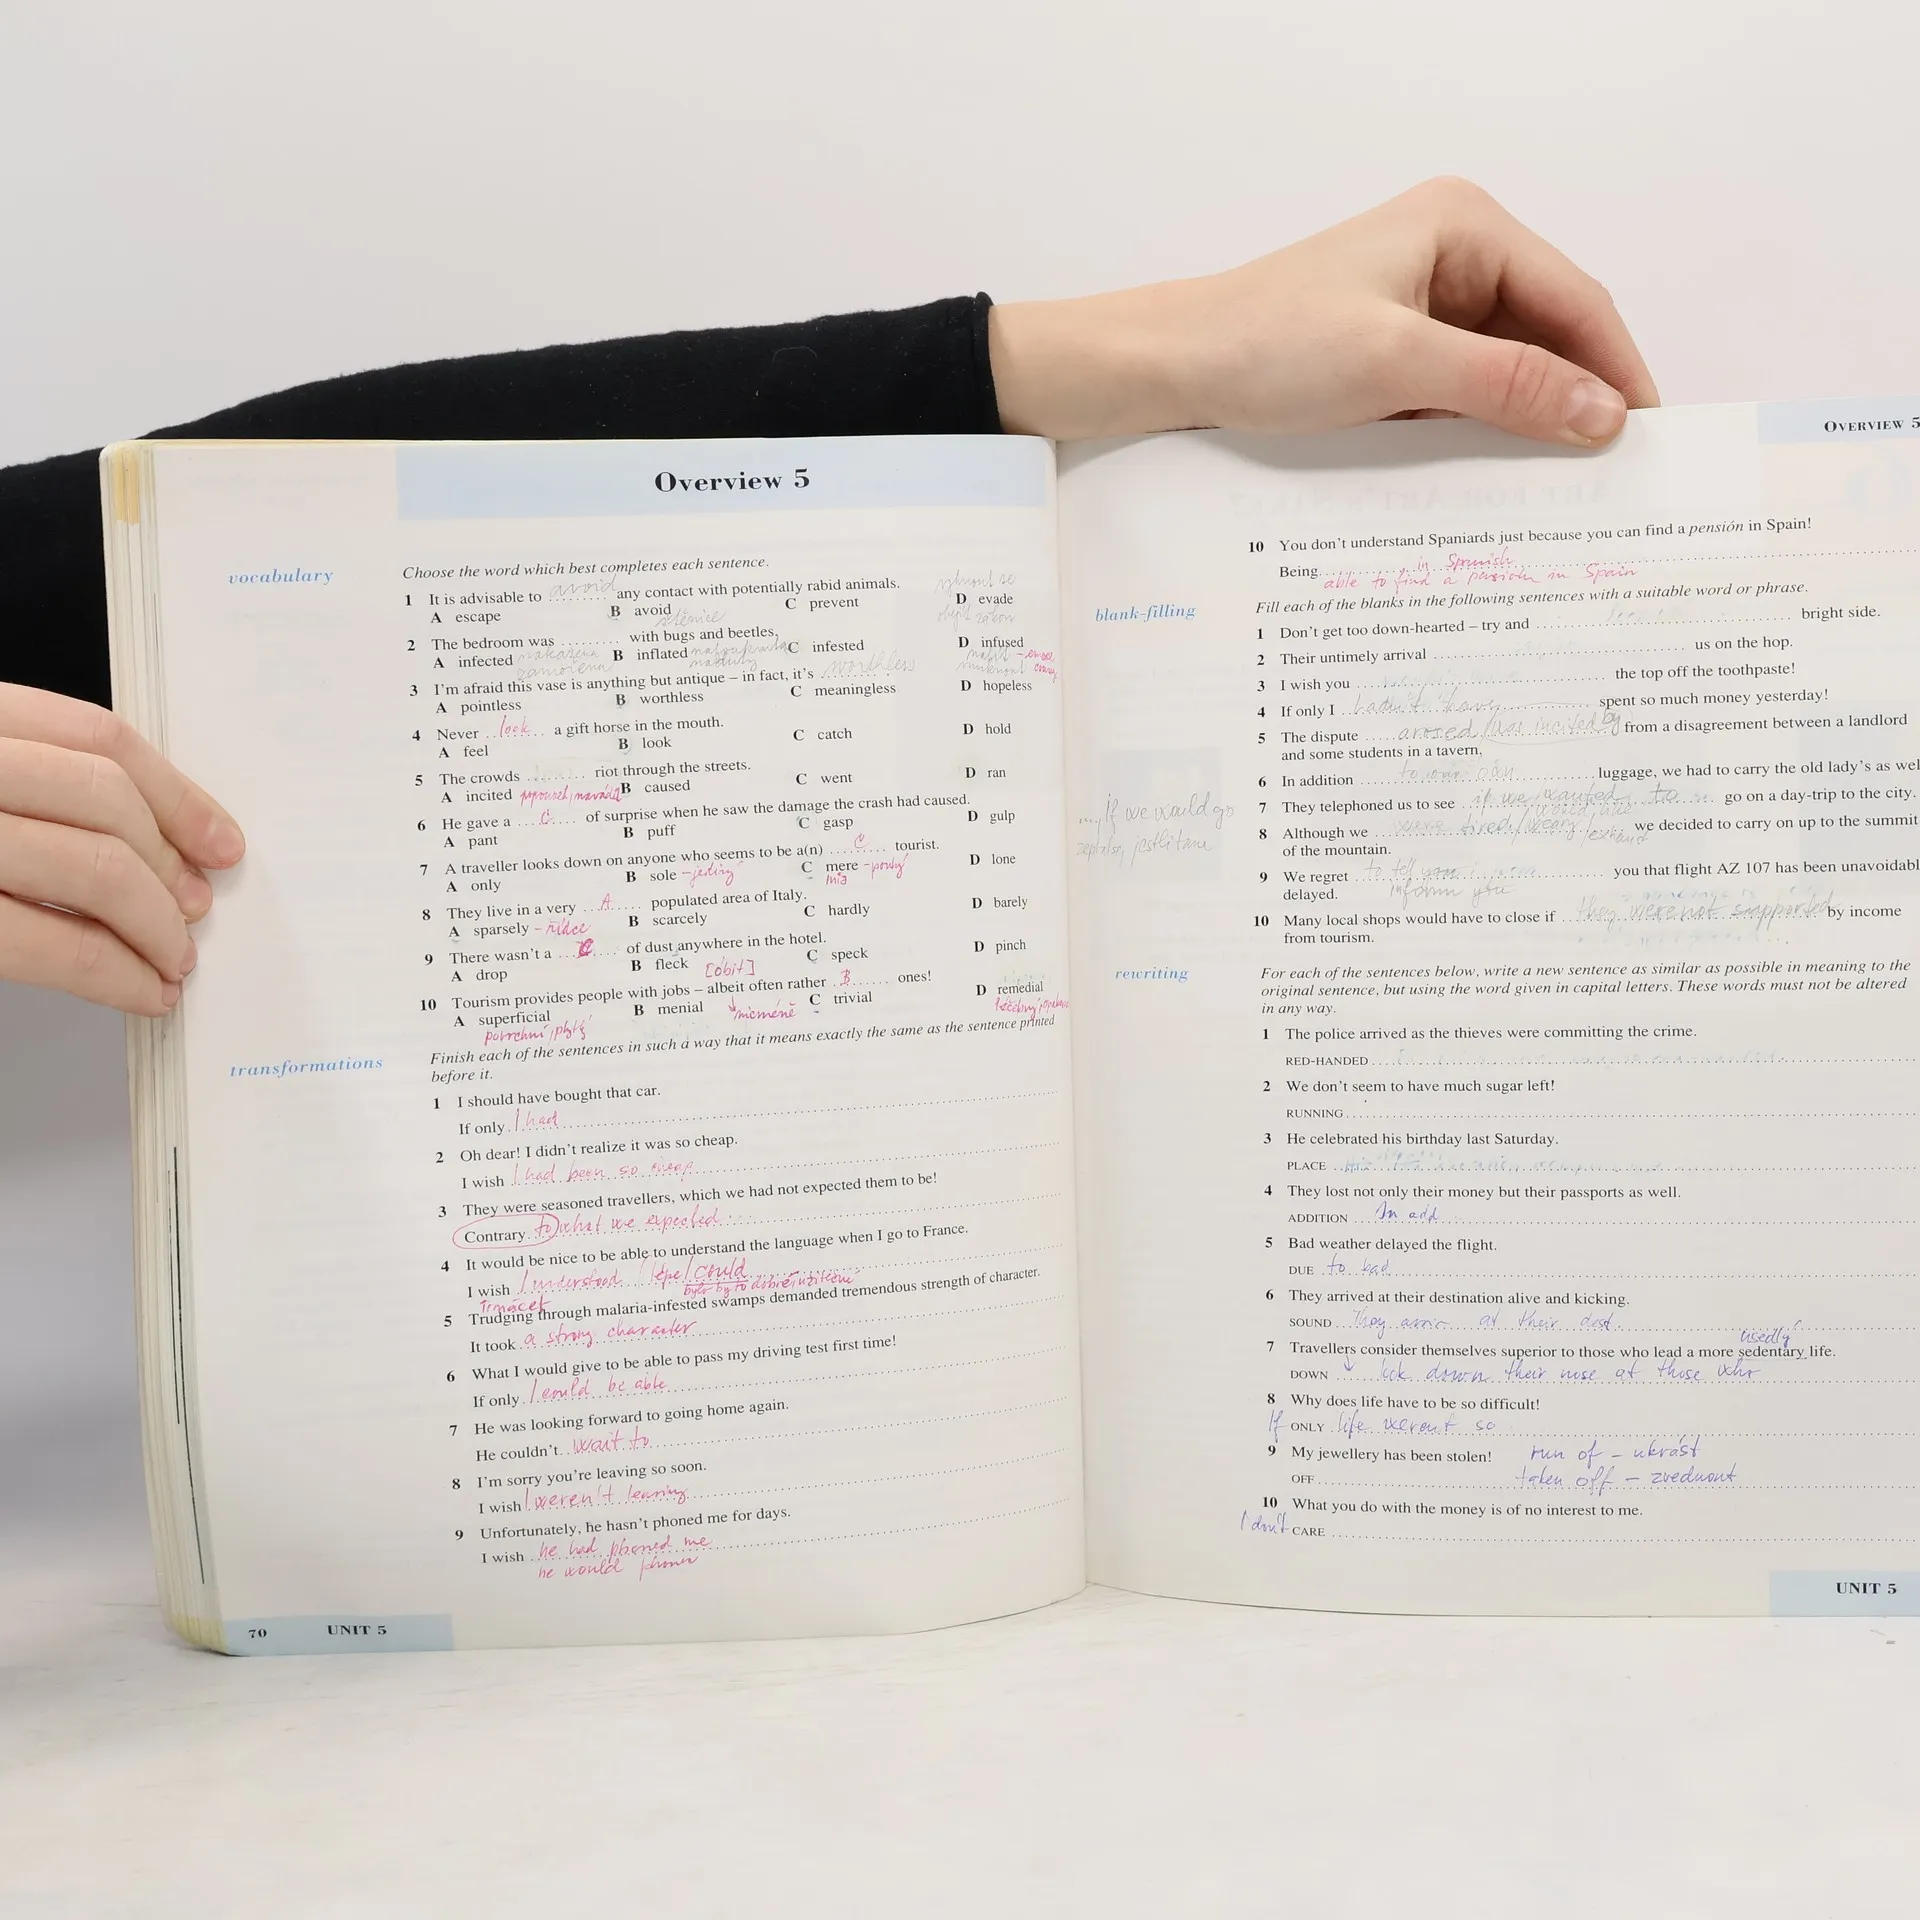 Overview 5
vocabulary
Choose the word which best completes each sentence.
1 It is advisable to avoid any contact with potentially rabid animals.
A escape B avoid C prevent D evade
2 The bedroom was ......... with bugs and beetles.
A infected B inflated C infested D infused
3 I'm afraid this vase is anything but antique – in fact, it's worthless
A pointless B worthless C meaningless D hopeless
4 Never look a gift horse in the mouth.
A feel B look C catch D hold
5 The crowds ......... riot through the streets.
A incited B caused C went D ran
6 He gave a C of surprise when he saw the damage the crash had caused.
A pant B puff C gasp D gulp
7 A traveller looks down on anyone who seems to be a(n) C tourist.
A only B sole – jediný C mere – pouhý D lone
8 They live in a very A populated area of Italy.
A sparsely – řídce B scarcely C hardly D barely
9 There wasn't a C of dust anywhere in the hotel.
A drop B fleck C speck D pinch
10 Tourism provides people with jobs – albeit often rather B ones!
A superficial B menial nicméně C trivial D remedial
transformations
Finish each of the sentences in such a way that it means exactly the same as the sentence printed
before it.
1 I should have bought that car.
If only I had
2 Oh dear! I didn't realize it was so cheap.
I wish I had been so cheap
3 They were seasoned travellers, which we had not expected them to be!
Contrary to what we expected
4 It would be nice to be able to understand the language when I go to France.
I wish I understood / lépe / could
5 Trudging through malaria-infested swamps demanded tremendous strength of character.
It took a strong character
6 What I would give to be able to pass my driving test first time!
If only I could be able
7 He was looking forward to going home again.
He couldn't wait to
8 I'm sorry you're leaving so soon.
I wish I weren't leaving
9 Unfortunately, he hasn't phoned me for days.
I wish he had phoned me
he would phone
70 UNIT 5
OVERVIEW 5
10 You don't understand Spaniards just because you can find a pensión in Spain!
Being in Spanish
able to find a pension in Spain
blank-filling
Fill each of the blanks in the following sentences with a suitable word or phrase.
1 Don't get too down-hearted – try and ......... bright side.
2 Their untimely arrival ......... us on the hop.
3 I wish you ......... the top off the toothpaste!
4 If only I hadn't have spent so much money yesterday!
5 The dispute arosed / was incited by from a disagreement between a landlord
and some students in a tavern.
6 In addition to our own luggage, we had to carry the old lady's as well
7 They telephoned us to see if we wanted to go on a day-trip to the city.
... if we would go
8 Although we were tired / weary we decided to carry on up to the summit
of the mountain.
9 We regret to tell you you that flight AZ 107 has been unavoidabl
delayed. inform you
10 Many local shops would have to close if they were not supported by income
from tourism.
rewriting
For each of the sentences below, write a new sentence as similar as possible in meaning to the
original sentence, but using the word given in capital letters. These words must not be altered
in any way.
1 The police arrived as the thieves were committing the crime.
RED-HANDED
2 We don't seem to have much sugar left!
RUNNING
3 He celebrated his birthday last Saturday.
PLACE
4 They lost not only their money but their passports as well.
ADDITION In add
5 Bad weather delayed the flight.
DUE to bad
6 They arrived at their destination alive and kicking.
SOUND They arriv at their dest.
usedlý
7 Travellers consider themselves superior to those who lead a more sedentary life.
DOWN look down their nose at those who
8 Why does life have to be so difficult!
If ONLY life weren't so
9 My jewellery has been stolen! run of – ukrást
OFF taken off – zvednout
10 What you do with the money is of no interest to me.
I don't CARE
UNIT 5